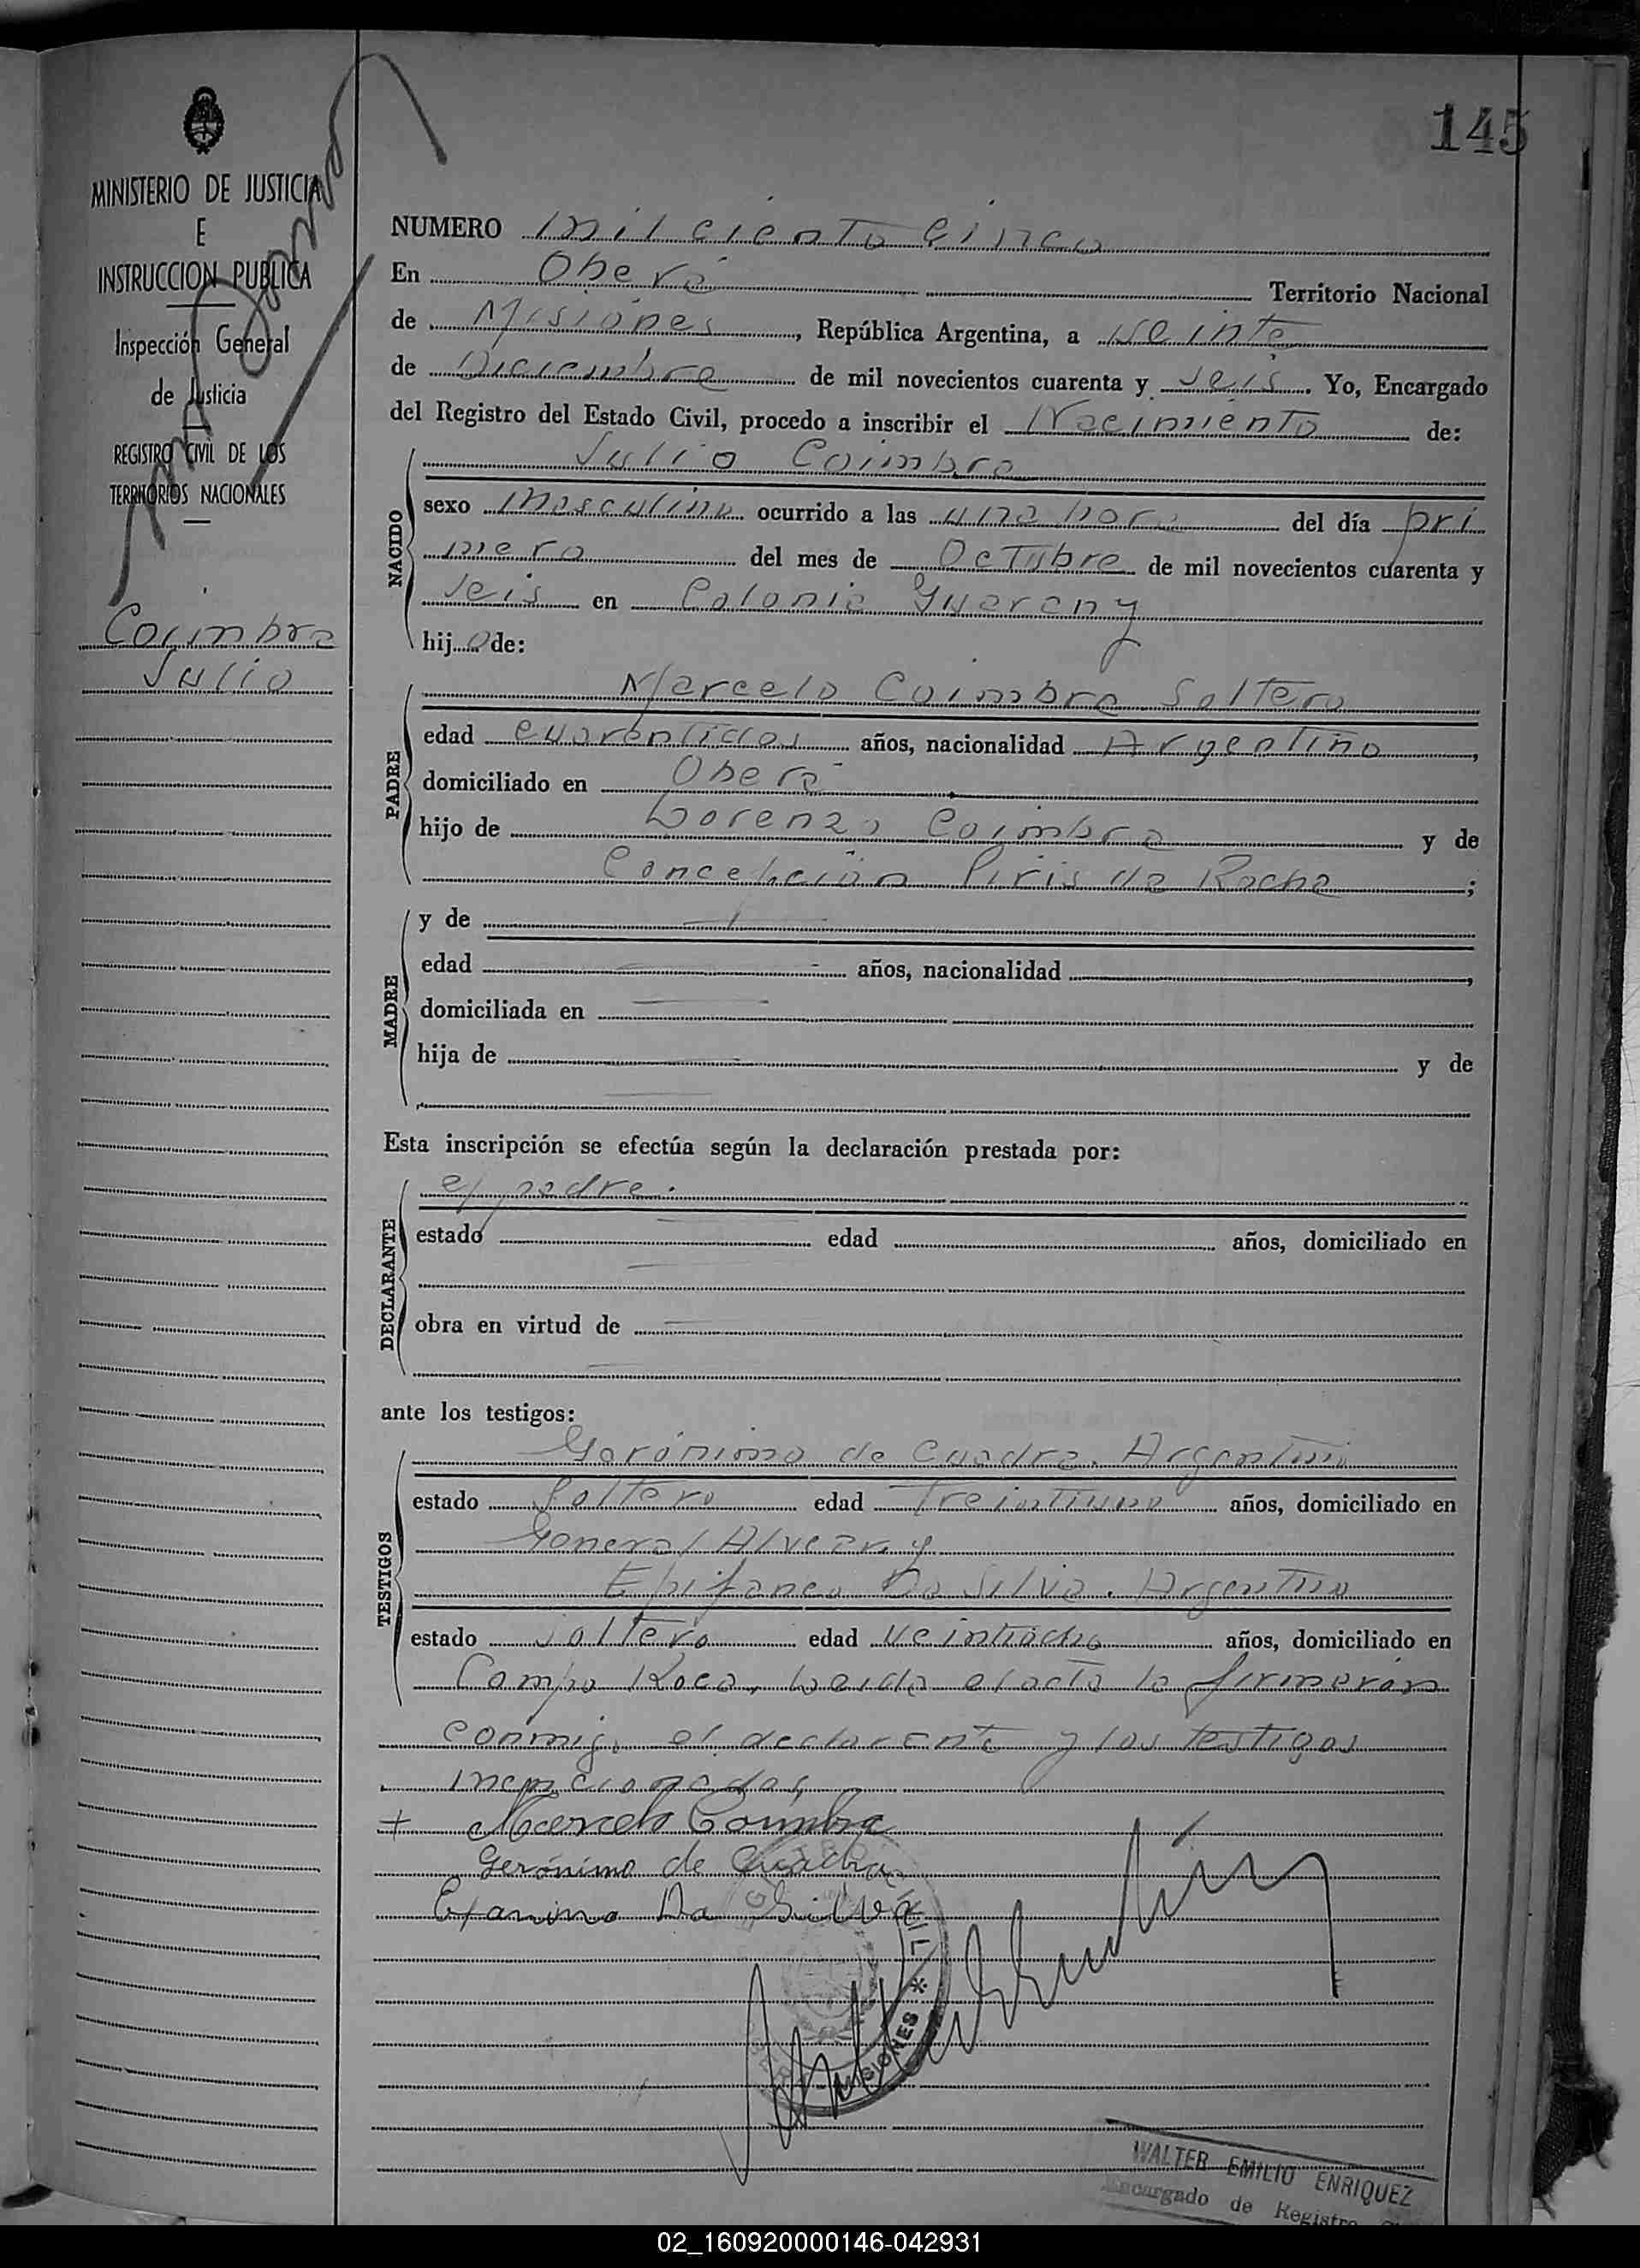 145
MINISTERIO DE JUSTICIA
E
INSTRUCCION PUBLICA
Inspección General
de Justicia
REGISTRO CIVIL DE LOS
TERRITORIOS NACIONALES
Coimbra
Julio
NUMERO mil ciento cinco
En Oberá Territorio Nacional
de Misiones, República Argentina, a veinte
de Diciembre de mil novecientos cuarenta y seis. Yo, Encargado
del Registro del Estado Civil, procedo a inscribir el Nacimiento de:
NACIDO
Julio Coimbra
sexo masculino ocurrido a las una hora del día pri
mero del mes de Octubre de mil novecientos cuarenta y
seis en Colonia Guarany
hijo de:
PADRE
Marcelo Coimbra Soltero
edad cuarentidos años, nacionalidad Argentino,
domiciliado en Oberá
hijo de Lorenzo Coimbra y de
Concepción Piris da Rocha;
MADRE
y de
edad años, nacionalidad,
domiciliada en
hija de y de
Esta inscripción se efectúa según la declaración prestada por:
DECLARANTE
el padre.
estado edad años, domiciliado en
obra en virtud de
ante los testigos:
TESTIGOS
Gerónimo de Cuadra. Argentino
estado Soltero edad treintiuno años, domiciliado en
General Alvear y
Epifaneo Da Silva. Argentino
estado soltero edad veintiocho años, domiciliado en
Campo Roca. Leida el acta la firmarán
conmigo el declarante y los testigos
mencionados,
+ Marcelo Coimbra
Gerónimo de Cuadra
Da Silva
MISIONES *
WALTER EMILIO ENRIQUEZ
Encargado de Registro
02_160920000146-042931